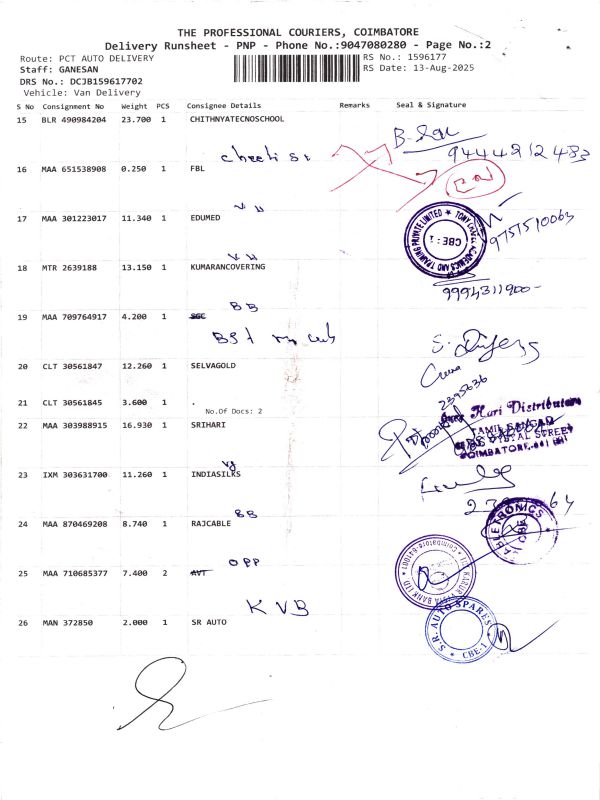 THE PROFESSIONAL COURIERS, COIMBATORE
Delivery Runsheet - PNP - Phone No.:9047080280 - Page No.:2
Route: PCT AUTO DELIVERY RS No.: 1596177
Staff: GANESAN RS Date: 13-Aug-2025
DRS No.: DCJB159617702
Vehicle: Van Delivery
S No Consignment No Weight PCS Consignee Details Remarks Seal & Signature
15 BLR 490984204 23.700 1 CHITHNYATECNOSCHOOL
9444912483
16 MAA 651538908 0.250 1 FBL
17 MAA 301223017 11.340 1 EDUMED
CBE : 1
9751510063
18 MTR 2639188 13.150 1 KUMARANCOVERING
9994311900-
BB
19 MAA 709764917 4.200 1 SGC
20 CLT 30561847 12.260 1 SELVAGOLD
2395636
21 CLT 30561845 3.600 1 .
No.Of Docs: 2
Hari Distributors
22 MAA 303988915 16.930 1 SRIHARI
STREET
COIMBATORE
23 IXM 303631700 11.260 1 INDIASILKS
BB
24 MAA 870469208 8.740 1 RAJCABLE
CBE
OPP
25 MAA 710685377 7.400 2 AVT
KVB
26 MAN 372850 2.000 1 SR AUTO
S.R. AUTO SPARES
CBE-1